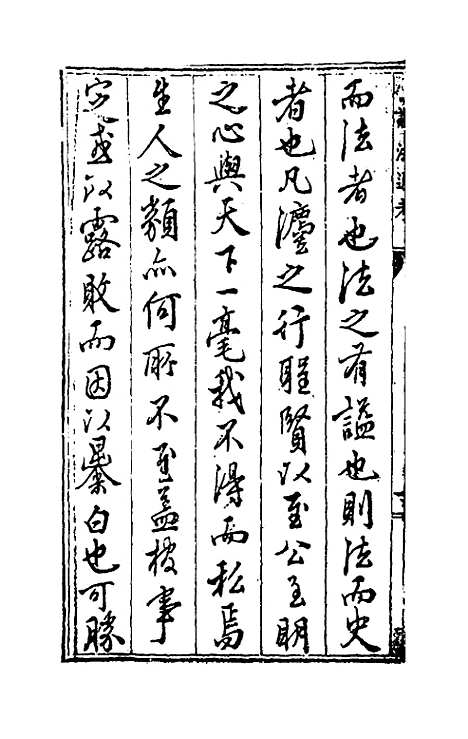 而法者也法之有謚也則法而史
者也凡瀍之行聖賢以至公至明
之心與天下一毫我不得而私焉
生人之類亦何所不至盖棱事
定或以露敗而因以暴白也可勝